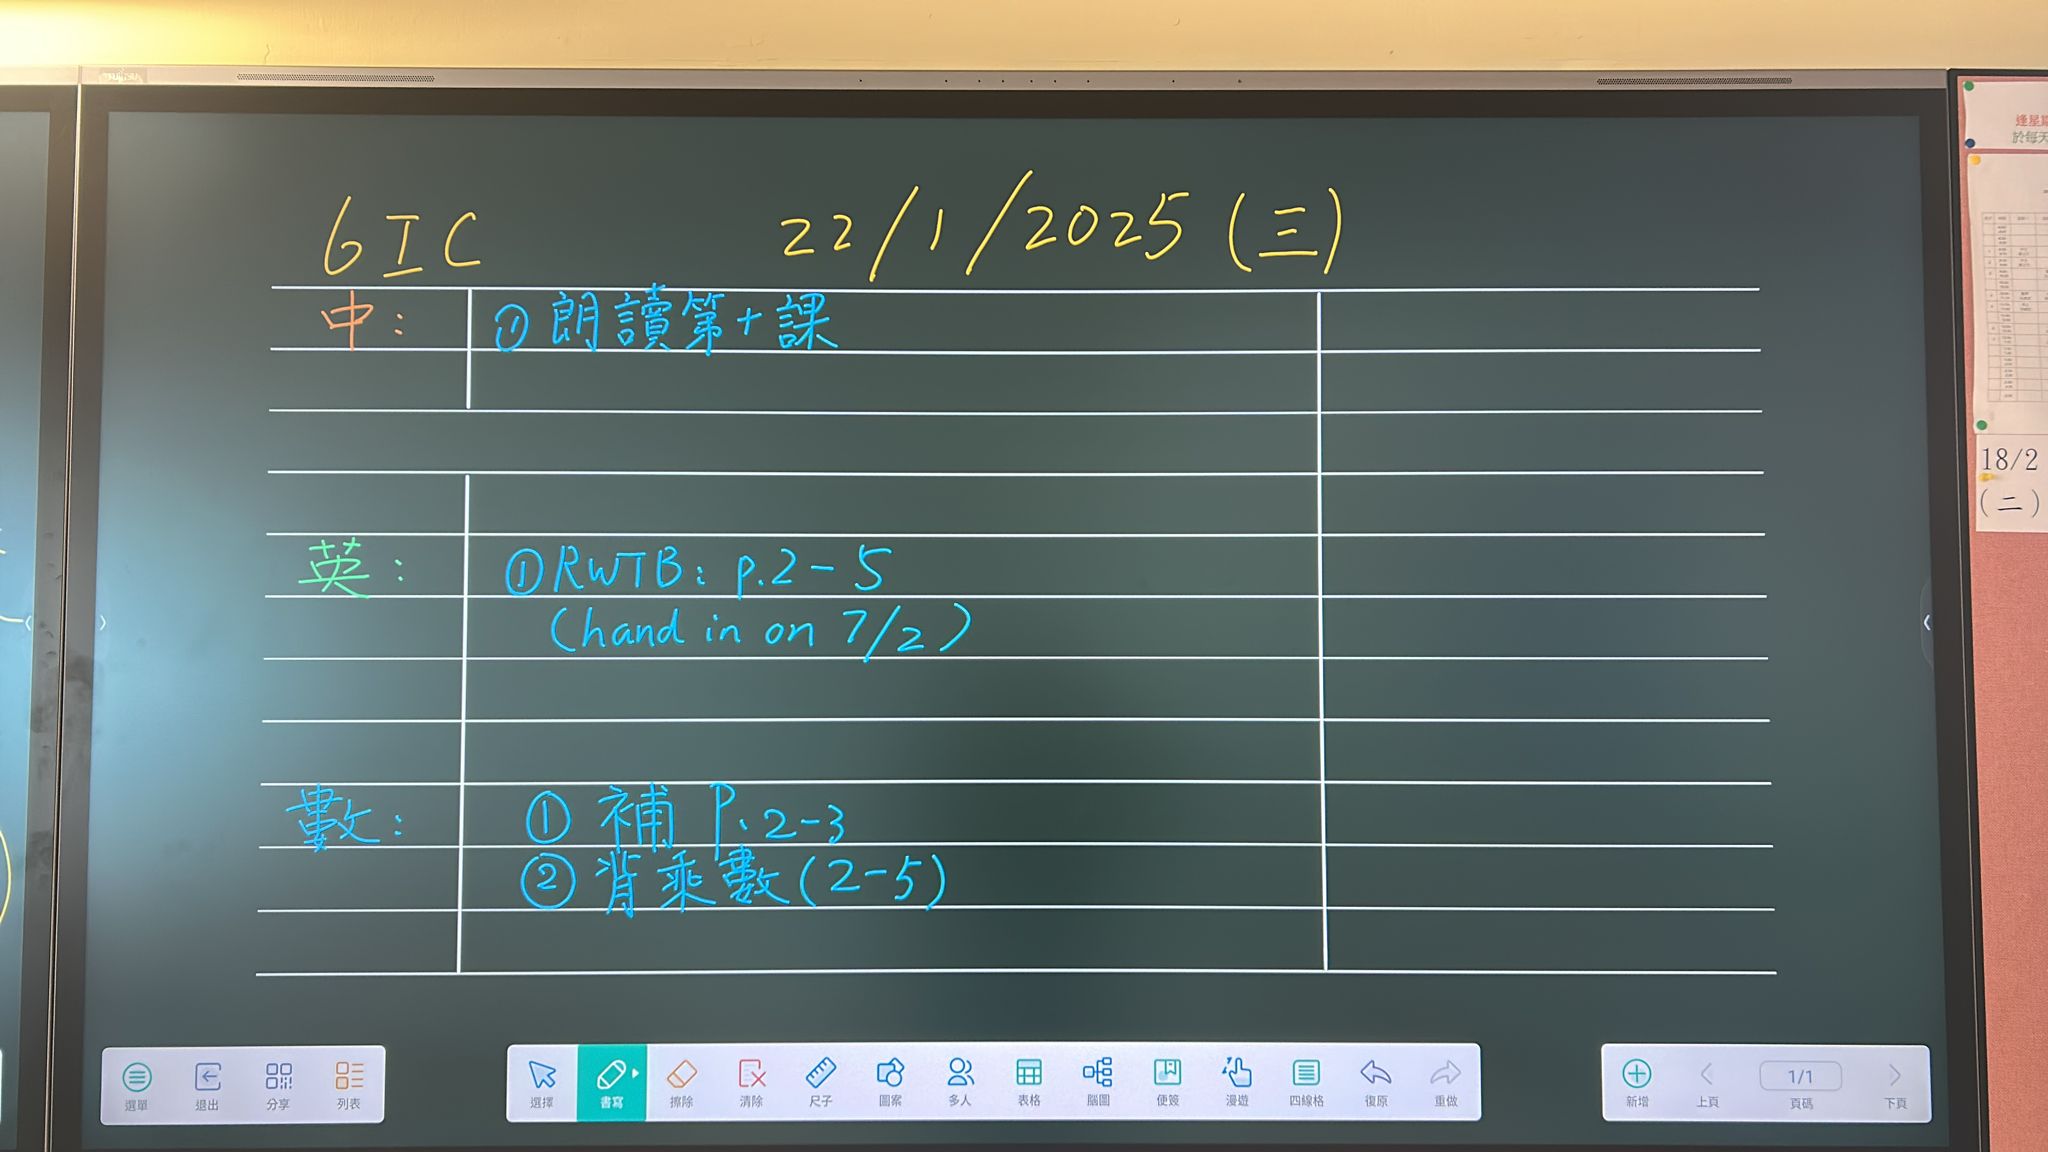 FUJITSU
6IC 22/1/2025 (三)
中: ① 朗讀第十課
英: ① RWTB: p.2-5
(hand in on 7/2)
數: ① 補 P.2-3
② 背乘數(2-5)
選單 退出 分享 列表
選擇 書寫 擦除 清除 尺子 圖案 多人 表格 腦圖 便簽 漫遊 四線格 復原 重做
新增 上頁 1/1 頁碼 下頁
逢星期
於每天
18/2
(二)